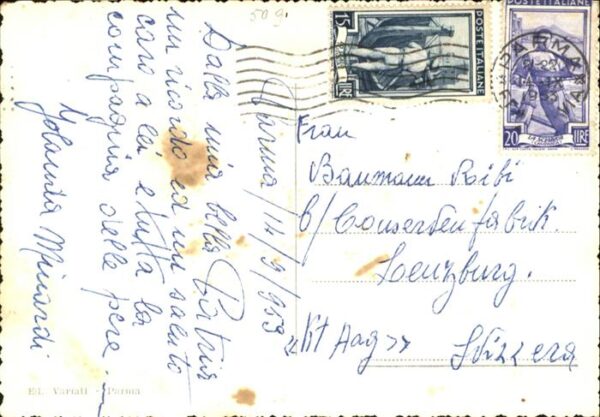 50 gr
Parma / 14/9/953
Dalla mia bella Patria
un ricordo ed un saluto
caro a lei e tutta la
compagnia delle pere . . .
Jolanda Minardi
Ed. Varoli - Parma
15 LIRE
POSTE ITALIANE
POSTE ITALIANE
20 LIRE
PARMA
Frau
Baumann Roibi
b/ Conserven fabrik
Lenzburg.
Kt Aag >>
Svizzera